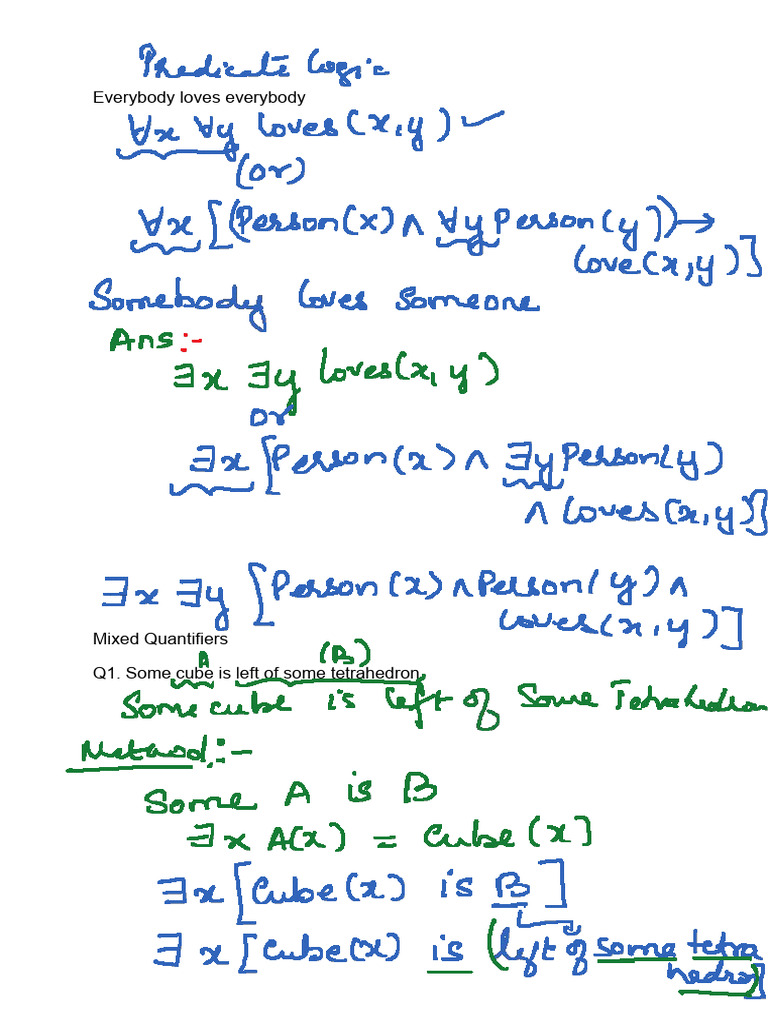 Predicate Logic
Everybody loves everybody
∀x ∀y loves(x,y) ✓
(or)
∀x [(Person(x) ∧ ∀y Person(y)) →
love(x,y)]
Somebody loves someone
Ans :-
∃x ∃y loves(x, y)
or
∃x [Person(x) ∧ ∃y Person(y)
∧ loves(x,y)]
∃x ∃y [Person(x) ∧ Person(y) ∧
loves(x,y)]
Mixed Quantifiers
A (B)
Q1. Some cube is left of some tetrahedron.
Some cube is left of Some Tetrahedron
Method :-
Some A is B
∃x A(x) = Cube(x)
∃x [Cube(x) is B]
∃x [Cube(x) is (left of some tetra
hedron)]